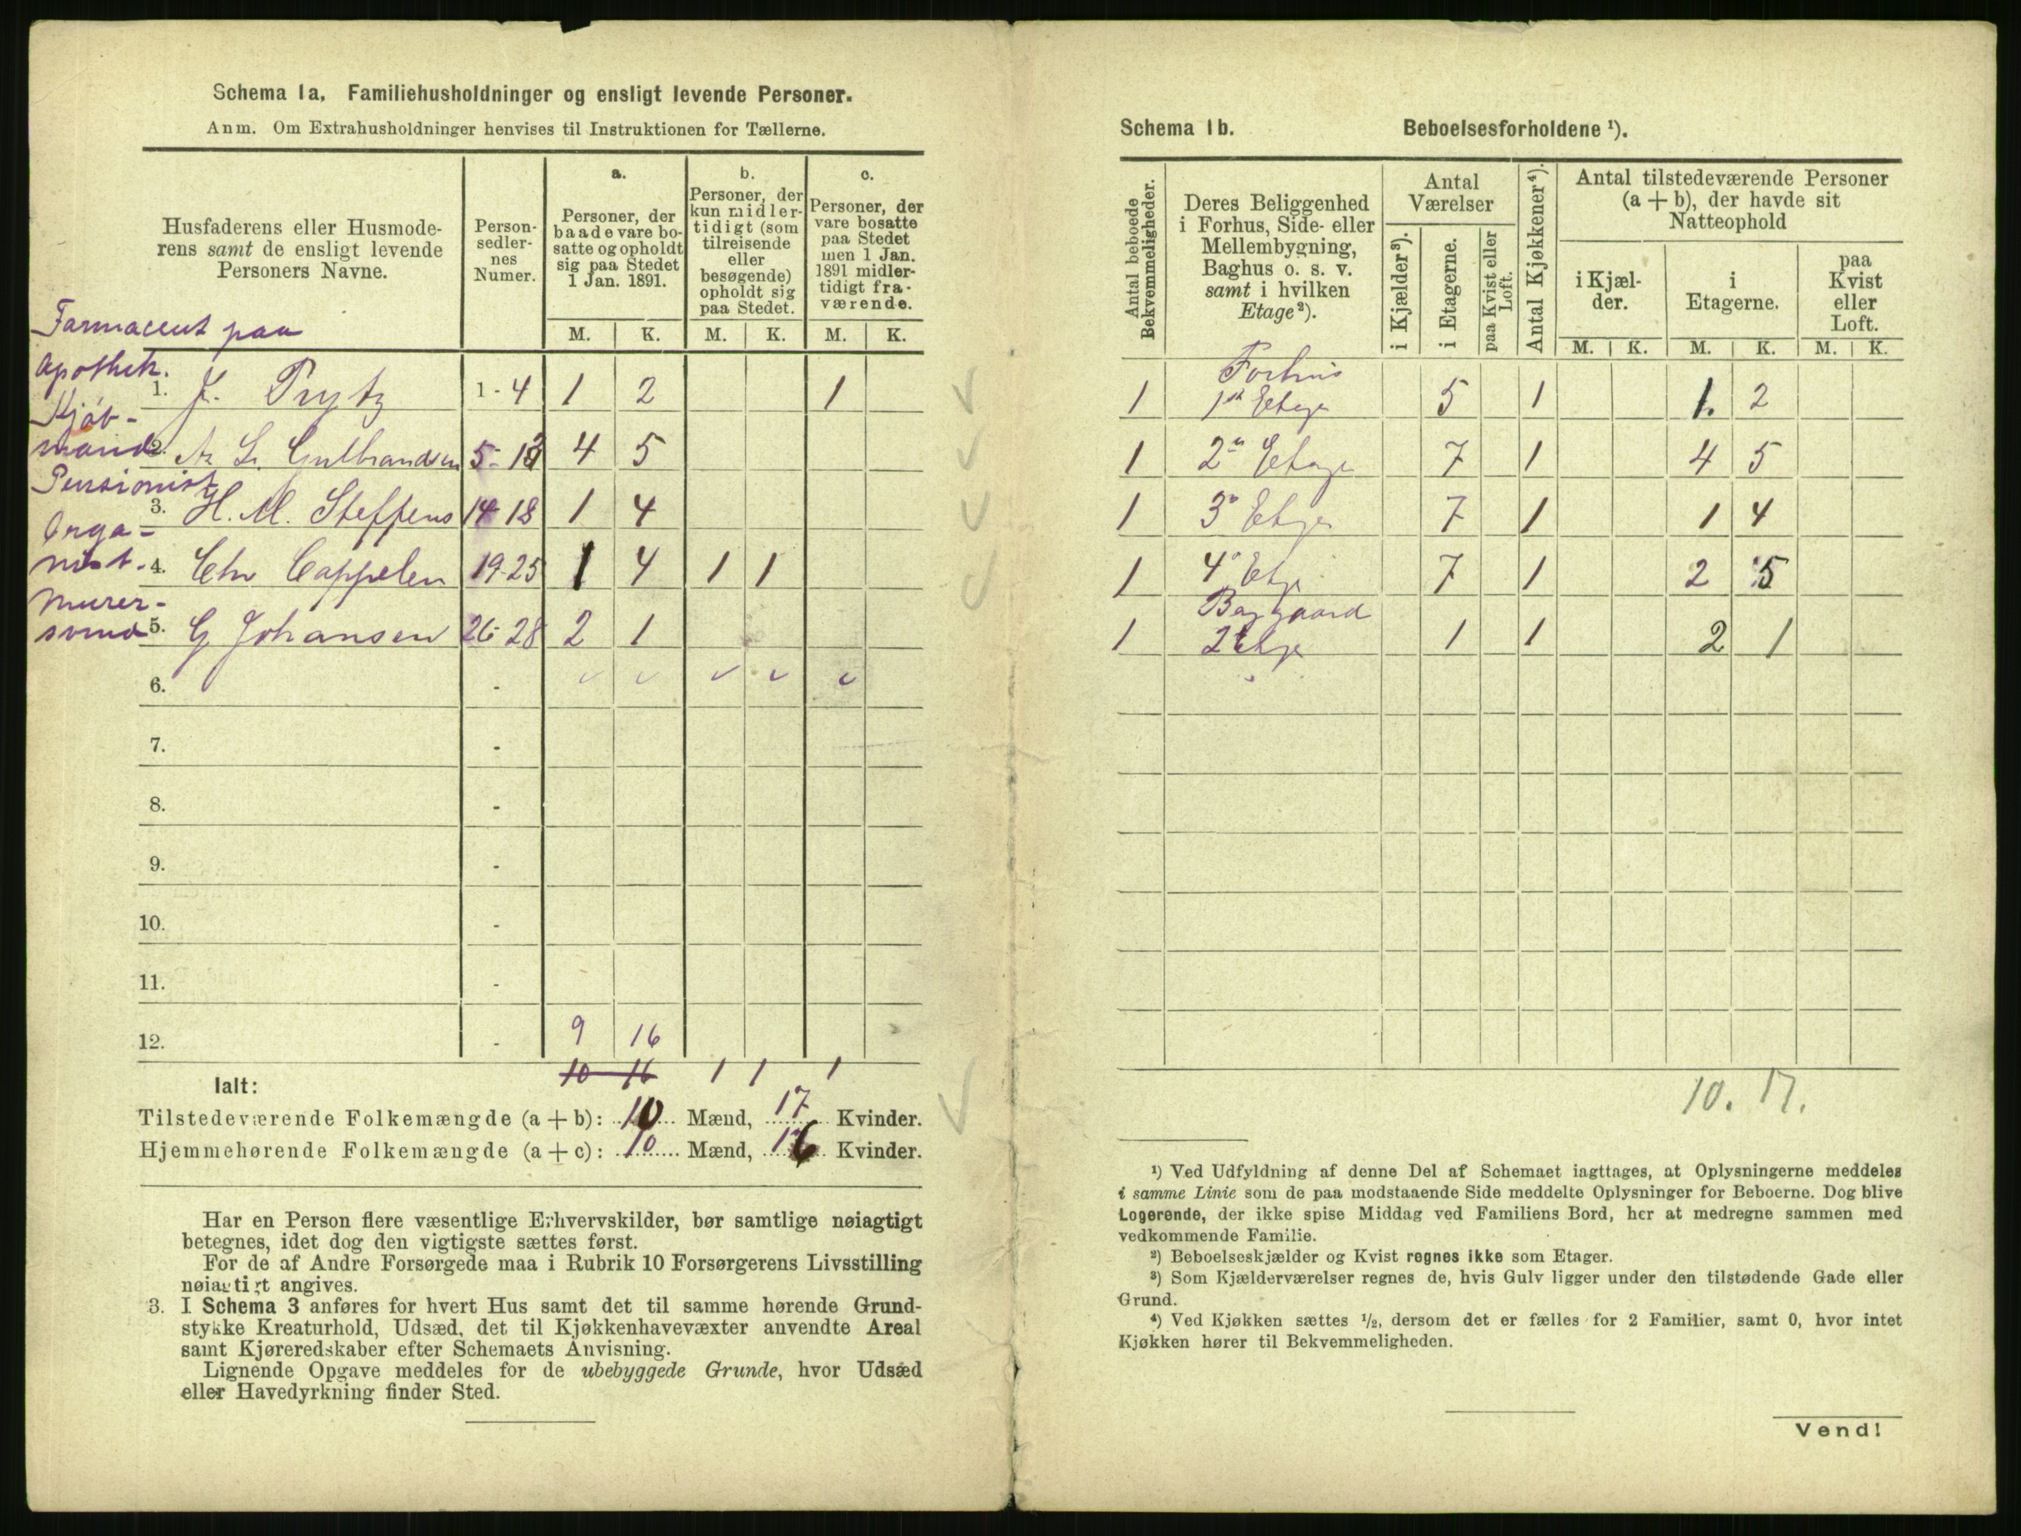 Schema 1a. Familiehusholdninger og ensligt levende Personer.
Anm. Om Extrahusholdninger henvises til Instruktionen for Tællerne.
Husfaderens eller Husmode-
rens samt de ensligt levende
Personers Navne.
Person-
sedler-
nes
Numer.
a.
Personer, der
baade vare bo-
satte og opholdt
sig paa Stedet
1 Jan. 1891.
b.
Personer, der
kun midler-
tidigt (som
tilreisende
eller
besøgende)
opholdt sig
paa Stedet.
c.
Personer, der
vare bosatte
paa Stedet
men 1 Jan.
1891 midler-
tidigt fra-
værende.
M. K. M. K. M. K.
Farmaceut paa
Apothek.
1. J. Prytz 1-4 1 2 1
Kjøb-
mand
2. A. L. Gulbrandsen 5-13 4 5
Pensionist
3. H. M. Steffens 14-18 1 4
Orga-
nist.
4. Chr Cappelen 19-25 1 4 1 1
Murer-
svend
5. G Johansen 26-28 2 1
6. -
7. -
8. -
9. -
10. -
11. -
12. - 9 16
10 16 1 1 1
Ialt:
Tilstedeværende Folkemængde (a + b): 10 Mænd, 17 Kvinder.
Hjemmehørende Folkemængde (a + c): 10 Mænd, 16 Kvinder.
Har en Person flere væsentlige Erhvervskilder, bør samtlige nøiagtigt
betegnes, idet dog den vigtigste sættes først.
For de af Andre Forsørgede maa i Rubrik 10 Forsørgerens Livsstilling
nøiagtigt angives.
3. I Schema 3 anføres for hvert Hus samt det til samme hørende Grund-
stykke Kreaturhold, Udsæd, det til Kjøkkenhavevæxter anvendte Areal
samt Kjøreredskaber efter Schemaets Anvisning.
Lignende Opgave meddeles for de ubebyggede Grunde, hvor Udsæd
eller Havedyrkning finder Sted.
Schema 1b. Beboelsesforholdene ¹).
Antal beboede
Bekvemmeligheder.
Deres Beliggenhed
i Forhus, Side- eller
Mellembygning,
Baghus o. s. v.
samt i hvilken
Etage²).
Antal
Værelser
i Kjælder³).
i Etagerne.
paa Kvist eller
Loft.
Antal Kjøkkener⁴).
Antal tilstedeværende Personer
(a + b), der havde sit
Natteophold
i Kjæl-
der.
i
Etagerne.
paa
Kvist
eller
Loft.
M. K. M. K. M. K.
Forhus
1 1st Etage 5 1 1. 2
1 2n Etage 7 1 4 5
1 3e Etage 7 1 1 4
1 4e Etage 7 1 2 5
Baggaard
1 2 Etage 1 1 2 1
10. 17.
¹) Ved Udfyldning af denne Del af Schemaet iagttages, at Oplysningerne meddeles
i samme Linie som de paa modstaaende Side meddelte Oplysninger for Beboerne. Dog blive
Logerende, der ikke spise Middag ved Familiens Bord, her at medregne sammen med
vedkommende Familie.
²) Beboelseskjælder og Kvist regnes ikke som Etager.
³) Som Kjælderværelser regnes de, hvis Gulv ligger under den tilstødende Gade eller
Grund.
⁴) Ved Kjøkken sættes ½, dersom det er fælles for 2 Familier, samt 0, hvor intet
Kjøkken hører til Bekvemmeligheden.
Vend!